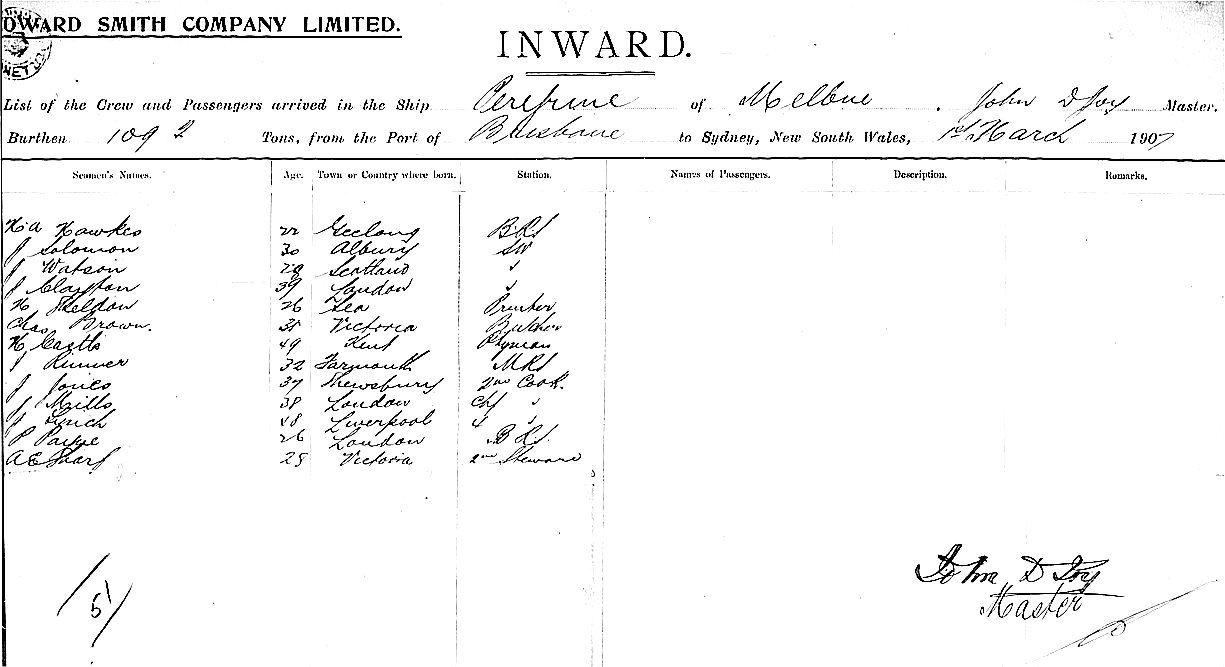 OWARD SMITH COMPANY LIMITED.
INWARD.
List of the Crew and Passengers arrived in the Ship Peregrine of Melbne . John D Joy Master.
Burthen 1092 Tons, from the Port of Brisbane to Sydney, New South Wales, 1st March 1907
Seamen's Names. Age. Town or Country where born. Station. Names of Passengers. Description. Remarks.
H.A Hawkes 22 Geelong BRS
J Solomon 30 Albury SW
J Watson 29 Scotland "
J Clayton 39 London "
H Sheldon 26 Sea
Chas Brown. Victoria Butcher
H Castle 49 Kent
J Rimmer 32 Yarmouth MRS
J Jones 37 Shewsbury 2nd Cook.
J Mills 38 London Chf "
J Lynch 48 Liverpool 4 "
P Payne 26 London BRS
A E Sharf 28 Victoria 2nd Steward
51
John D Joy
Master